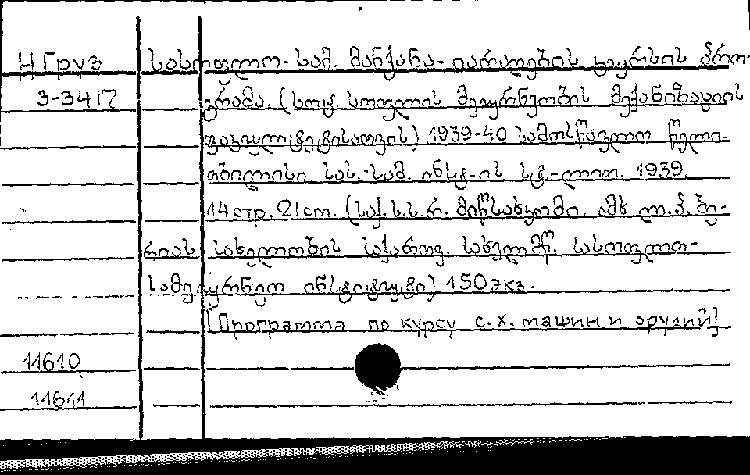 Н Груз სასოფლო-სამ. მანქანა-იარაღების კურსის პრო-
3-3417 გრამა. (სოც. სოფლის მეურნეობის მექანიზაციის
ფაკულტეტისათვის) 1939-40 სამოსწავლო წელი-
თბილისი სას.-სამ. ინსტ-ის სტ.-ლით. 1939.
14 стр. 21 cm. (საქ. ს. ს. რ. მიწსახკომი. ამხ. ლ. პ. ბე-
რიას სახელობის საქართ. სახელმწ. სასოფლო-
სამეურნეო ინსტიტუტი) 150 экз.
[Программа по курсу с.х. машин и орудий]
11610
11611